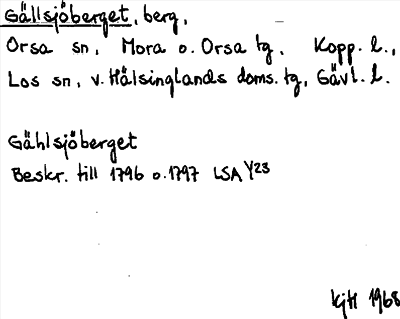 Gällsjöberget, berg,
Orsa sn, Mora o. Orsa tg, Kopp. l.,
Los sn, v. Hälsinglands doms. tg, Gävl. l.
Gählsjöberget
Beskr. till 1796 o. 1797 LSA Y23
KjH 1968